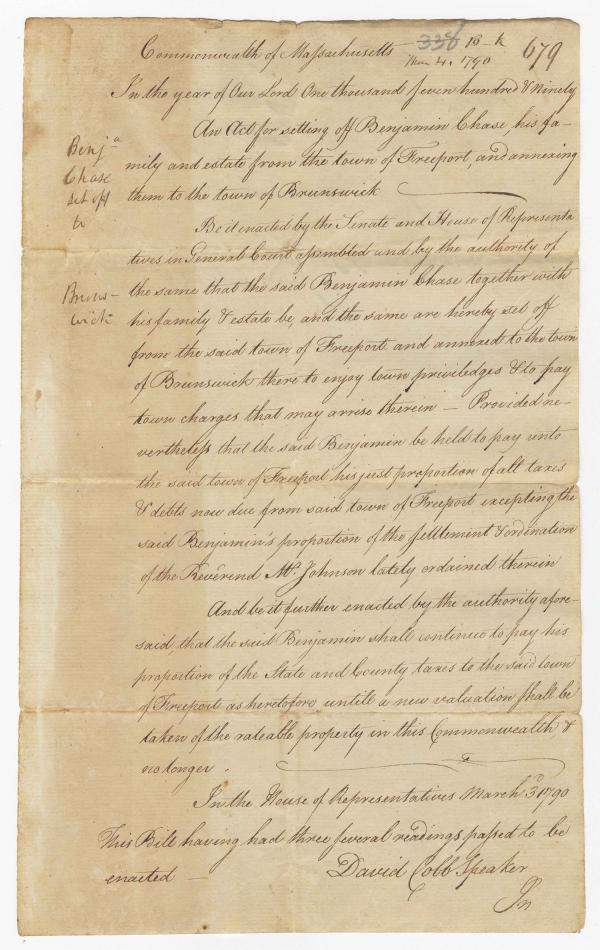 Commonwealth of Massachusetts 338 679
Mar. 4. 1790
In the year of Our Lord One thousand seven hundred & Ninety
An Act for setting off Benjamin Chase, his fa-
mily and estate from the town of Freeport, and annexing
them to the town of Brunswick
Benj-a
Chase
set off
to
Bruns-
wick
Be it enacted by the Senate and House of Representa
tives in General Court assembled and by the authority of
the same that the said Benjamin Chase together with
his family & estate be, and the same are hereby set off
from the said town of Freeport and annexed to the town
of Brunswick there to enjoy town priviledges & to pay
town charges that may arrise therein — Provided ne-
vertheless that the said Benjamin be held to pay unto
the said town of Freeport his just proportion of all taxes
& debts now due from said town of Freeport excepting the
said Benjamin's proportion of the settlement & ordination
of the Reverend Mr. Johnson lately ordained therein
And be it further enacted by the authority afore-
said, that the said Benjamin shall continue to pay his
proportion of the State and County taxes to the said town
of Freeport as heretofore, untill a new valuation shall be
taken of the rateable property in this Commonwealth &
no longer.
In the House of Representatives March 3d 1790
This Bill having had three several readings passed to be
enacted —
David Cobb Speaker
In